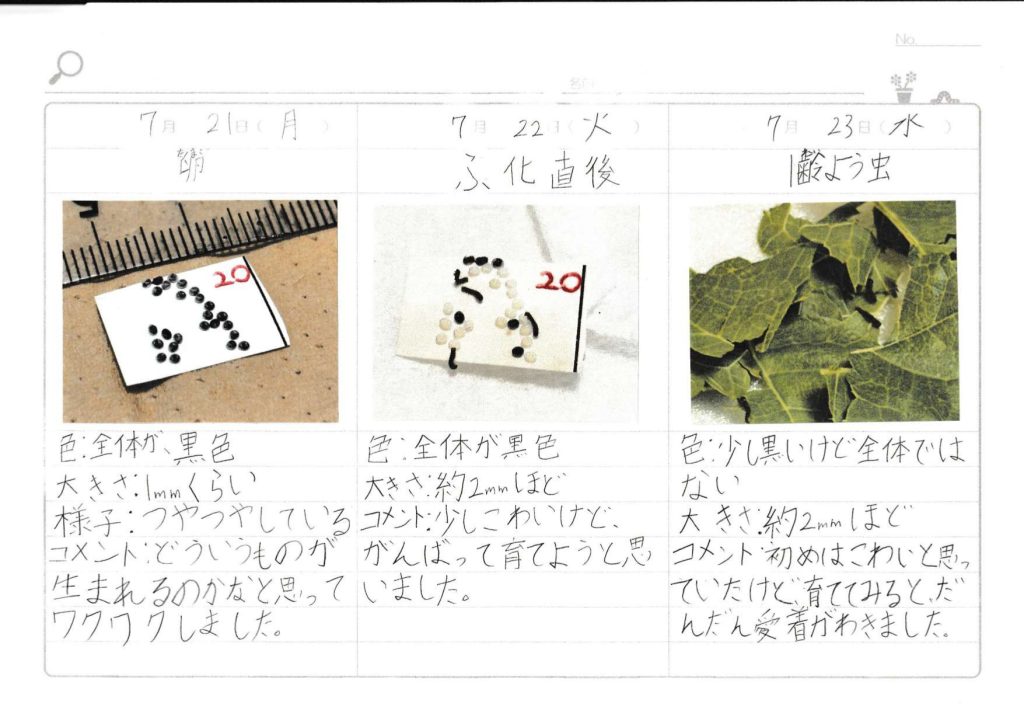 No.
7月 21日(月)
卵
20
色:全体が、黒色
大きさ:1mmくらい
様子:つやつやしている
コメント:どういうものが
生まれるのかなと思って
ワクワクしました。
7月 22日(火)
ふ化直後
20
色:全体が黒色
大きさ:約2mmほど
コメント:少しこわいけど、
がんばって育てようと思
いました。
7月 23日(水)
1齢よう虫
色:少し黒いけど全体では
ない
大きさ:約2mmほど
コメント:初めはこわいと思っ
ていたけど、育ててみると、だ
んだん愛着がわきました。